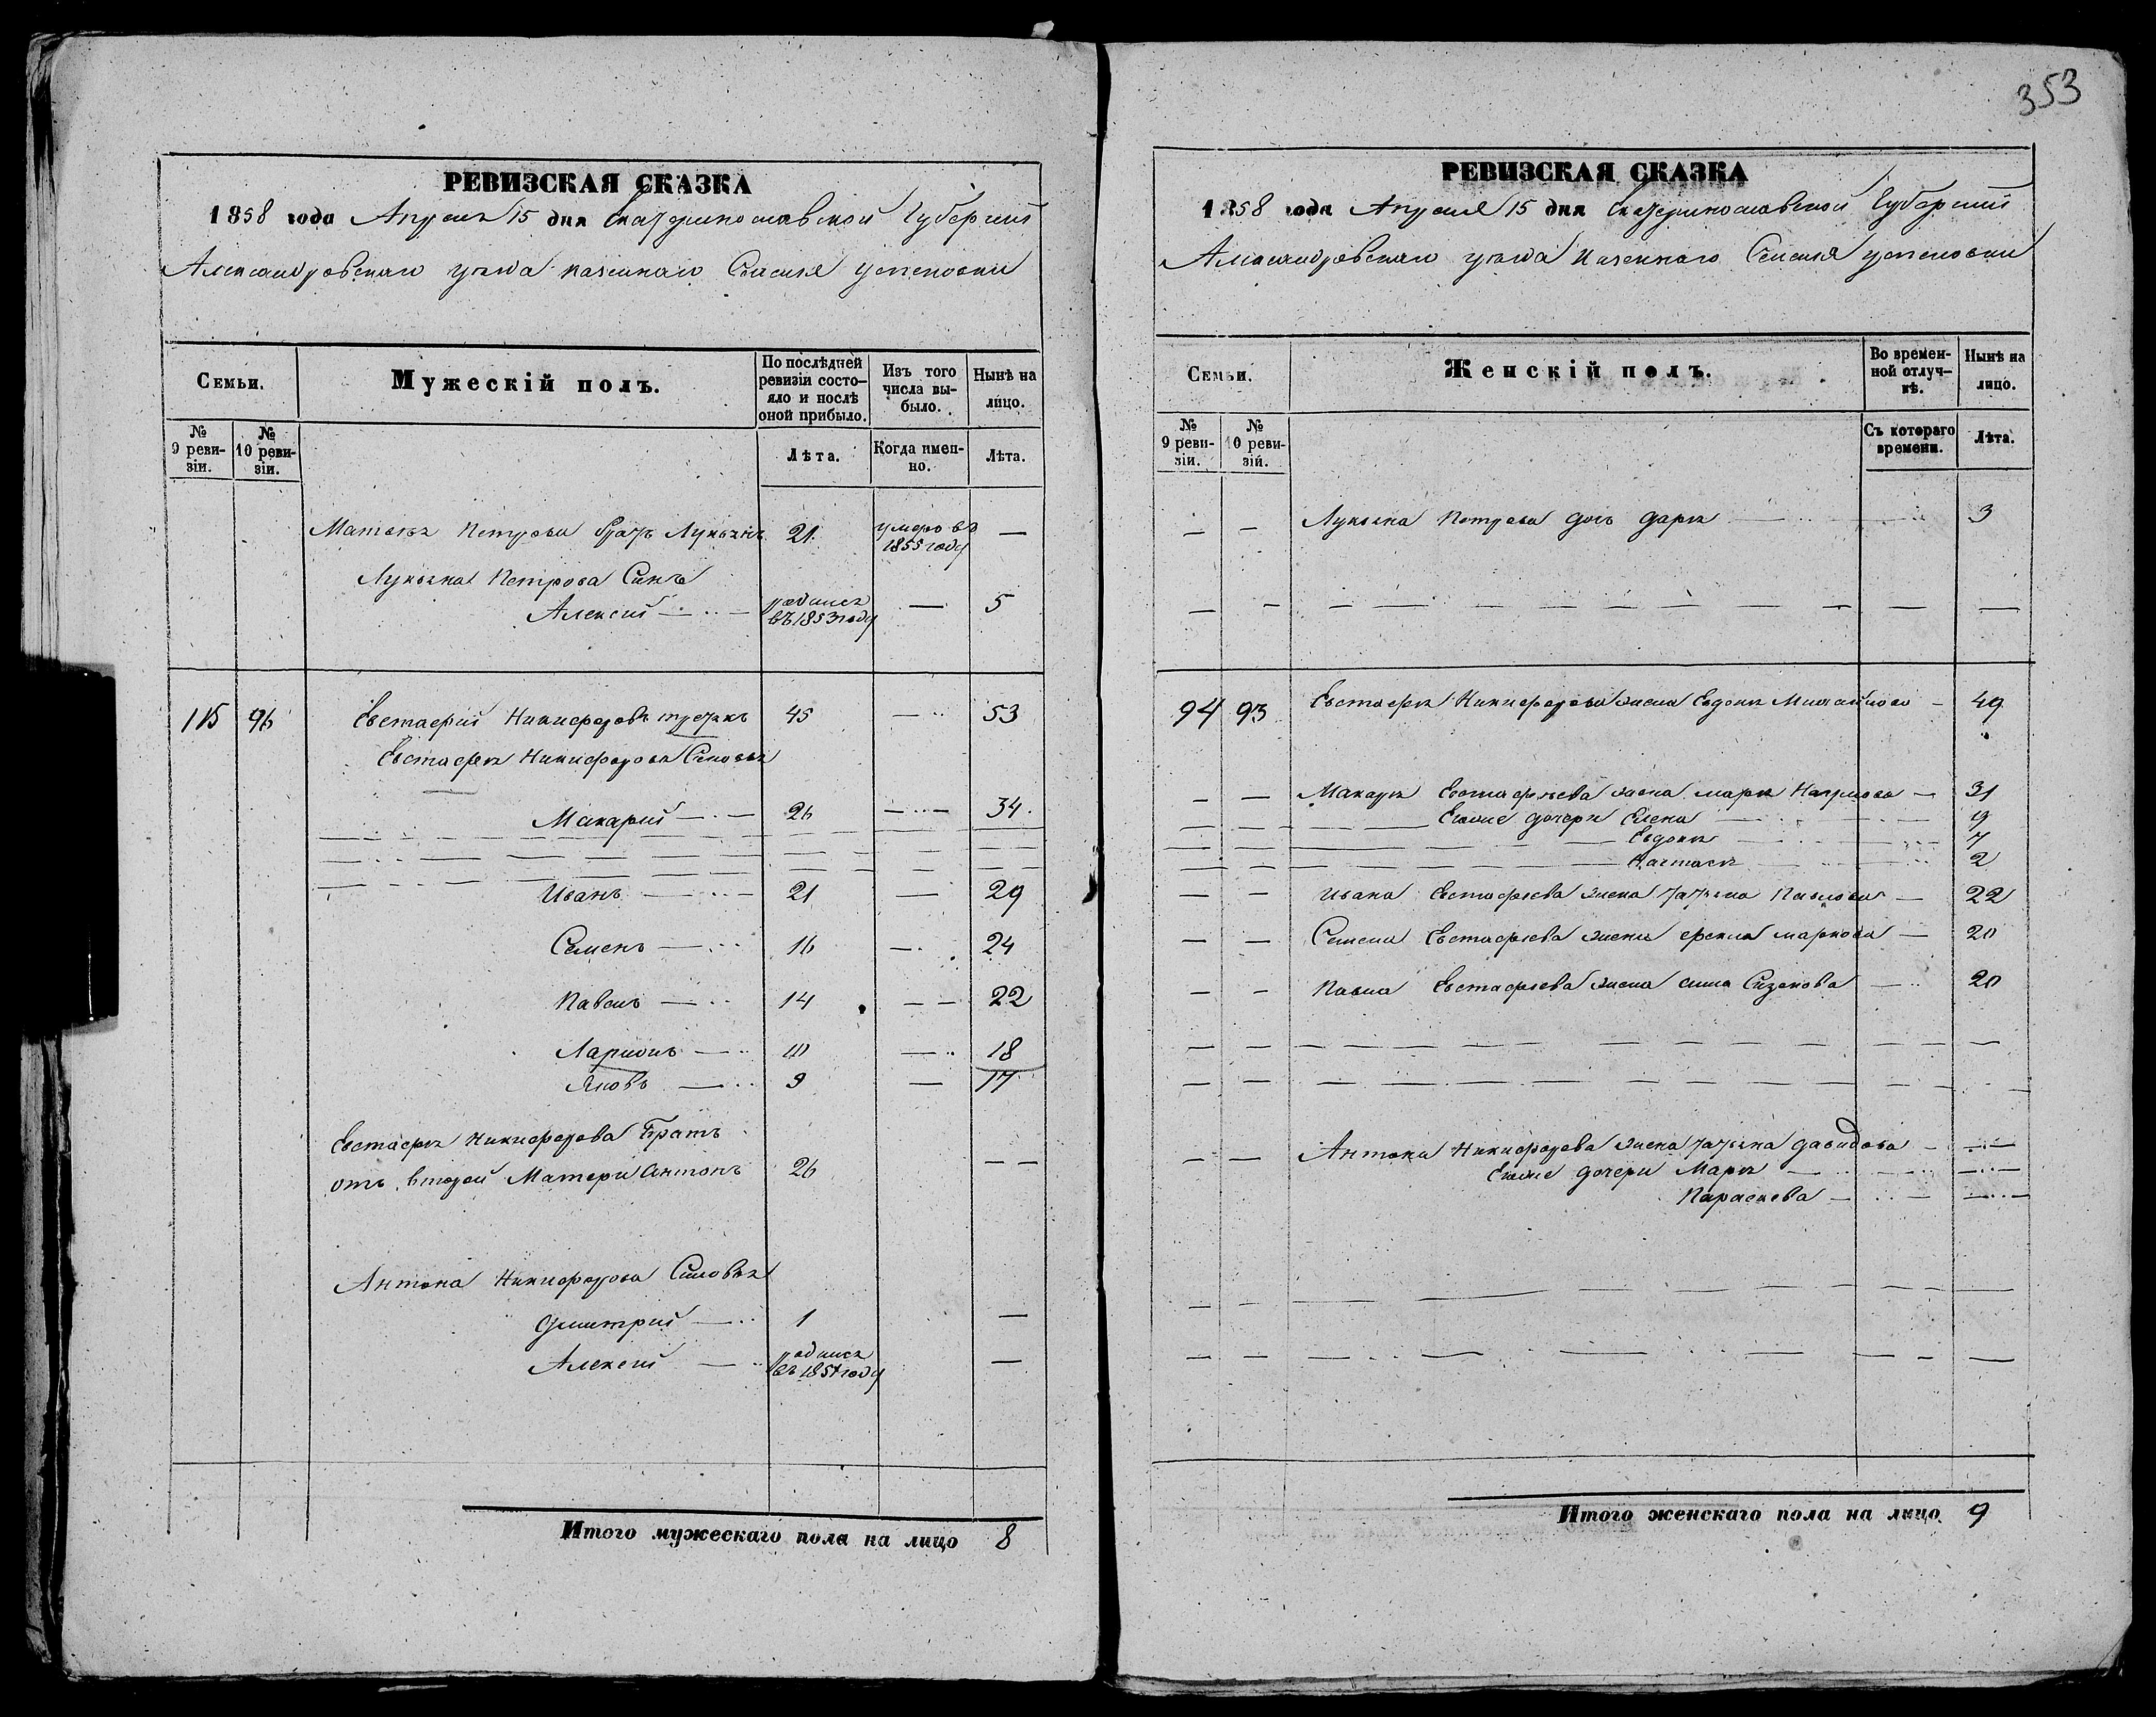 353
РЕВИЗСКАЯ СКАЗКА
1858 года Апреля 15 дня Екатеринославской Губернии
Александровскаго уезда казеннаго Селения Успеновки
Семьи.
Мужескій полъ.
По послѣдней ревизіи состо-
яло и послѣ
оной прибыло.
Изъ того
числа вы-
было.
Нынѣ на
лицо.
№
9 реви-
зіи.
№
10 реви-
зіи.
Лѣта.
Когда имен-
но.
Лѣта.
Матвея Петрова братъ Лукьянъ 21 умеръ въ 1855 году —
Лукьяна Петрова Синъ
Алексий родился въ 1853 году — 5
115 96 Евстафий Никифоровъ 45 — 53
Евстафия Никифорова Синовья
Макарий 26 — 34
Иванъ 21 — 29
Семенъ 16 — 24
Павелъ 14 — 22
Ларионъ 10 — 18
Яковъ 9 — 17
Евстафия Никифорова Братъ
отъ второй Матери Антонъ 26 — —
Антона Никифорова Синовья
Дмитрий 1 —
Алексей родился въ 1851 году —
Итого мужескаго пола на лицо 8
РЕВИЗСКАЯ СКАЗКА
1858 года Апреля 15 дня Екатеринославской Губернии
Александровскаго уезда Казеннаго Селения Успеновки
Семьи.
Женскій полъ.
Во времен-
ной отлуч-
кѣ.
Нынѣ на
лицо.
№
9 реви-
зіи.
№
10 реви-
зій.
Съ котораго
времени.
Лѣта.
— — Лукьяна Петрова дочь Дарья 3
94 93 Евстафия Никифорова жена Евдокия Михайлова — 49
— — Макария Евстафьева жена Мария Наумова — 31
Его же дочери Елена 9
Евдокия 7
Настасия 2
— — Ивана Евстафьева жена Татьяна Павлова — 22
— — Семена Евстафьева жена Фекла Маркова — 20
— — Павла Евстафьева жена Сизонова — 20
— — Антона Никифорова жена Татьяна Давидова — —
Его же дочери Мария — —
Параскева — —
Итого женскаго пола на лицо 9